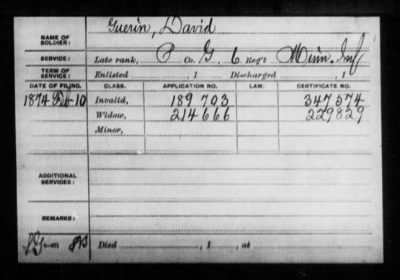 NAME OF SOLDIER: Guerin, David
SERVICE: Late rank, P Co. G, 6 Reg't Minn. Inf
TERM OF SERVICE: Enlisted , 1 Discharged , 1
DATE OF FILING. CLASS. APPLICATION NO. LAW. CERTIFICATE NO.
1874 Feb 10 Invalid, 189 703 347 574
Widow, 214 666 229829
Minor,
ADDITIONAL SERVICES:
REMARKS:
Died , 1 , at